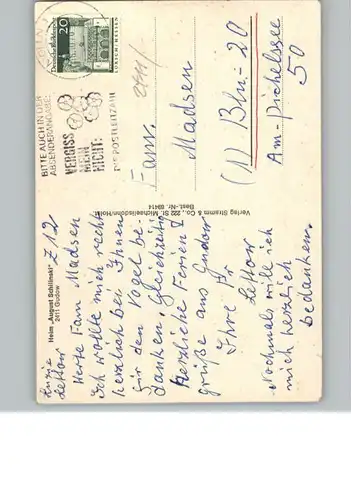 Luzie
Lettow
Z 12
Heim „August Schilinski"
2411 Gudow
Werte Fam Madsen
Ich wollte mich recht
herzlich bei Ihnen
für den Vogel be
danken, Gleichzeitig
Herzliche Ferien
grüße aus Gudow
Ihre Fr
Lettow
Nochmals will ich
mich herzlich
bedanken.
Verlag Stramm & Co., 222 St. Michaelisdonn/Holst.
Best.-Nr.
BITTE AUCH IN DER
ABSENDERANGABE:
VERGISS
MEIN
NICHT:
DIE POSTLEITZAHL
Deutsche Bundespost
20
LORSCH/HESSEN
2411
Fam.
Madsen
(1) Bln-20
Am-Pichelssee
50